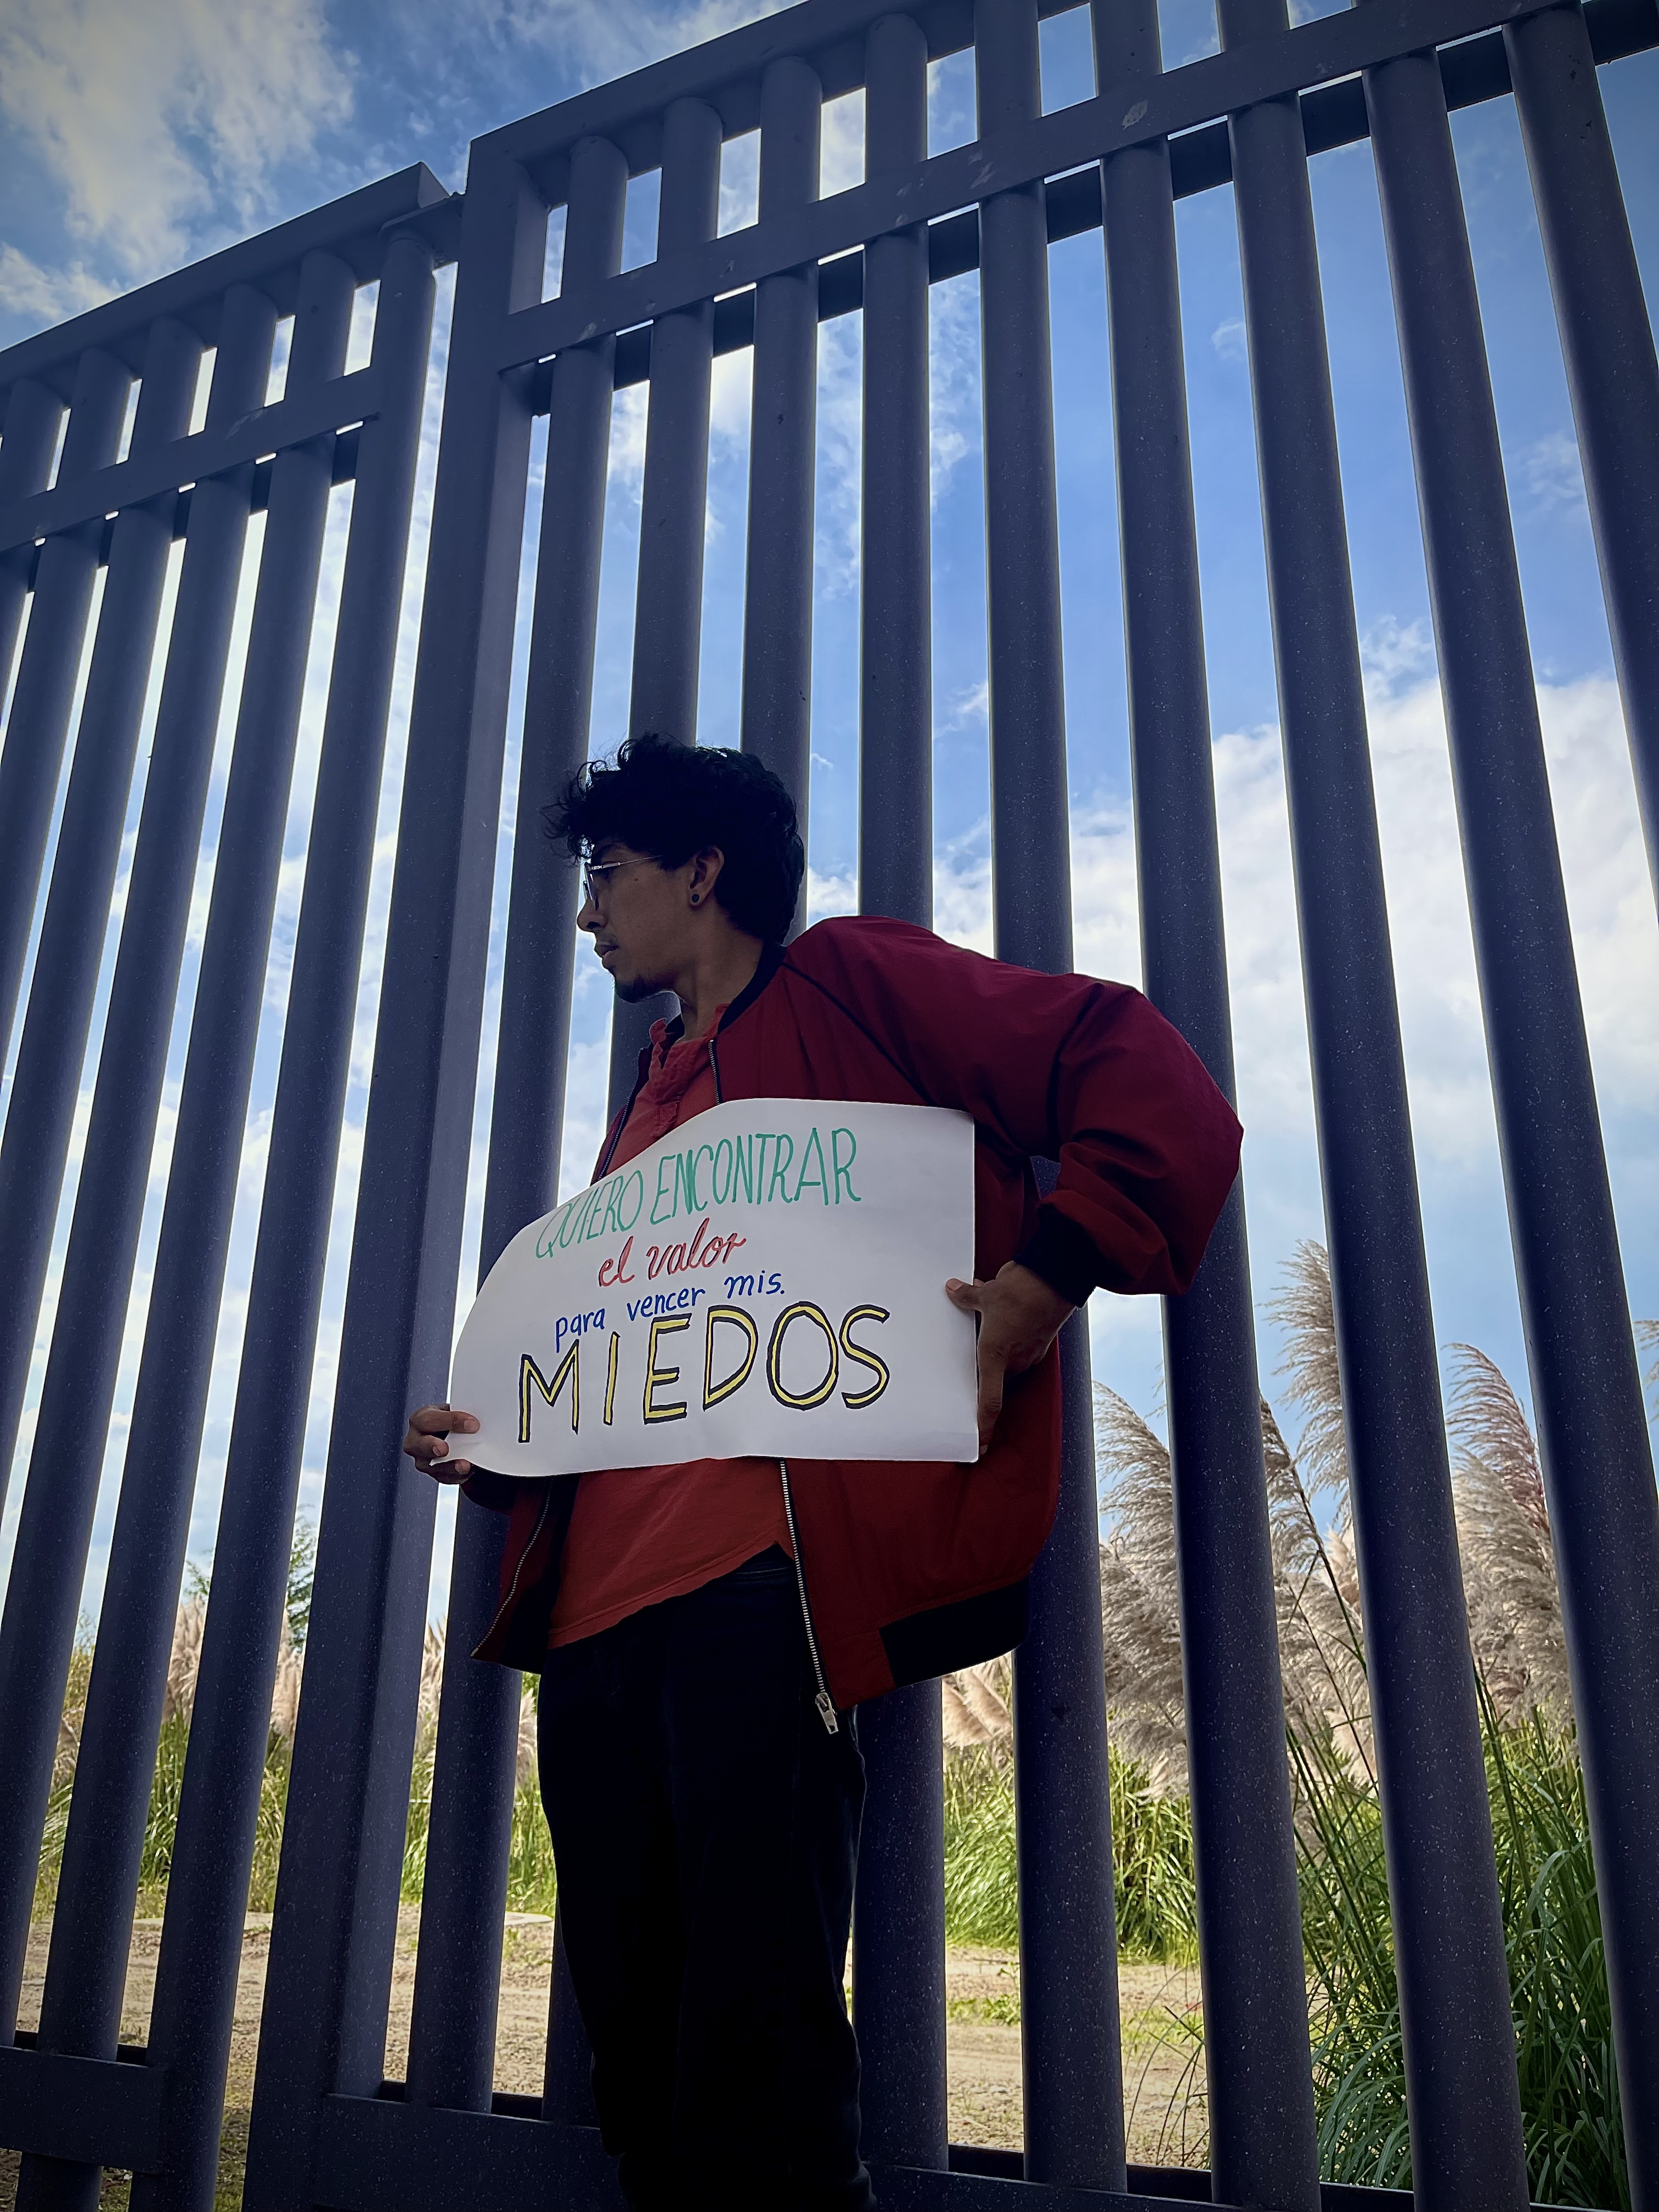 QUIERO ENCONTRAR
el valor
para vencer mis.
MIEDOS